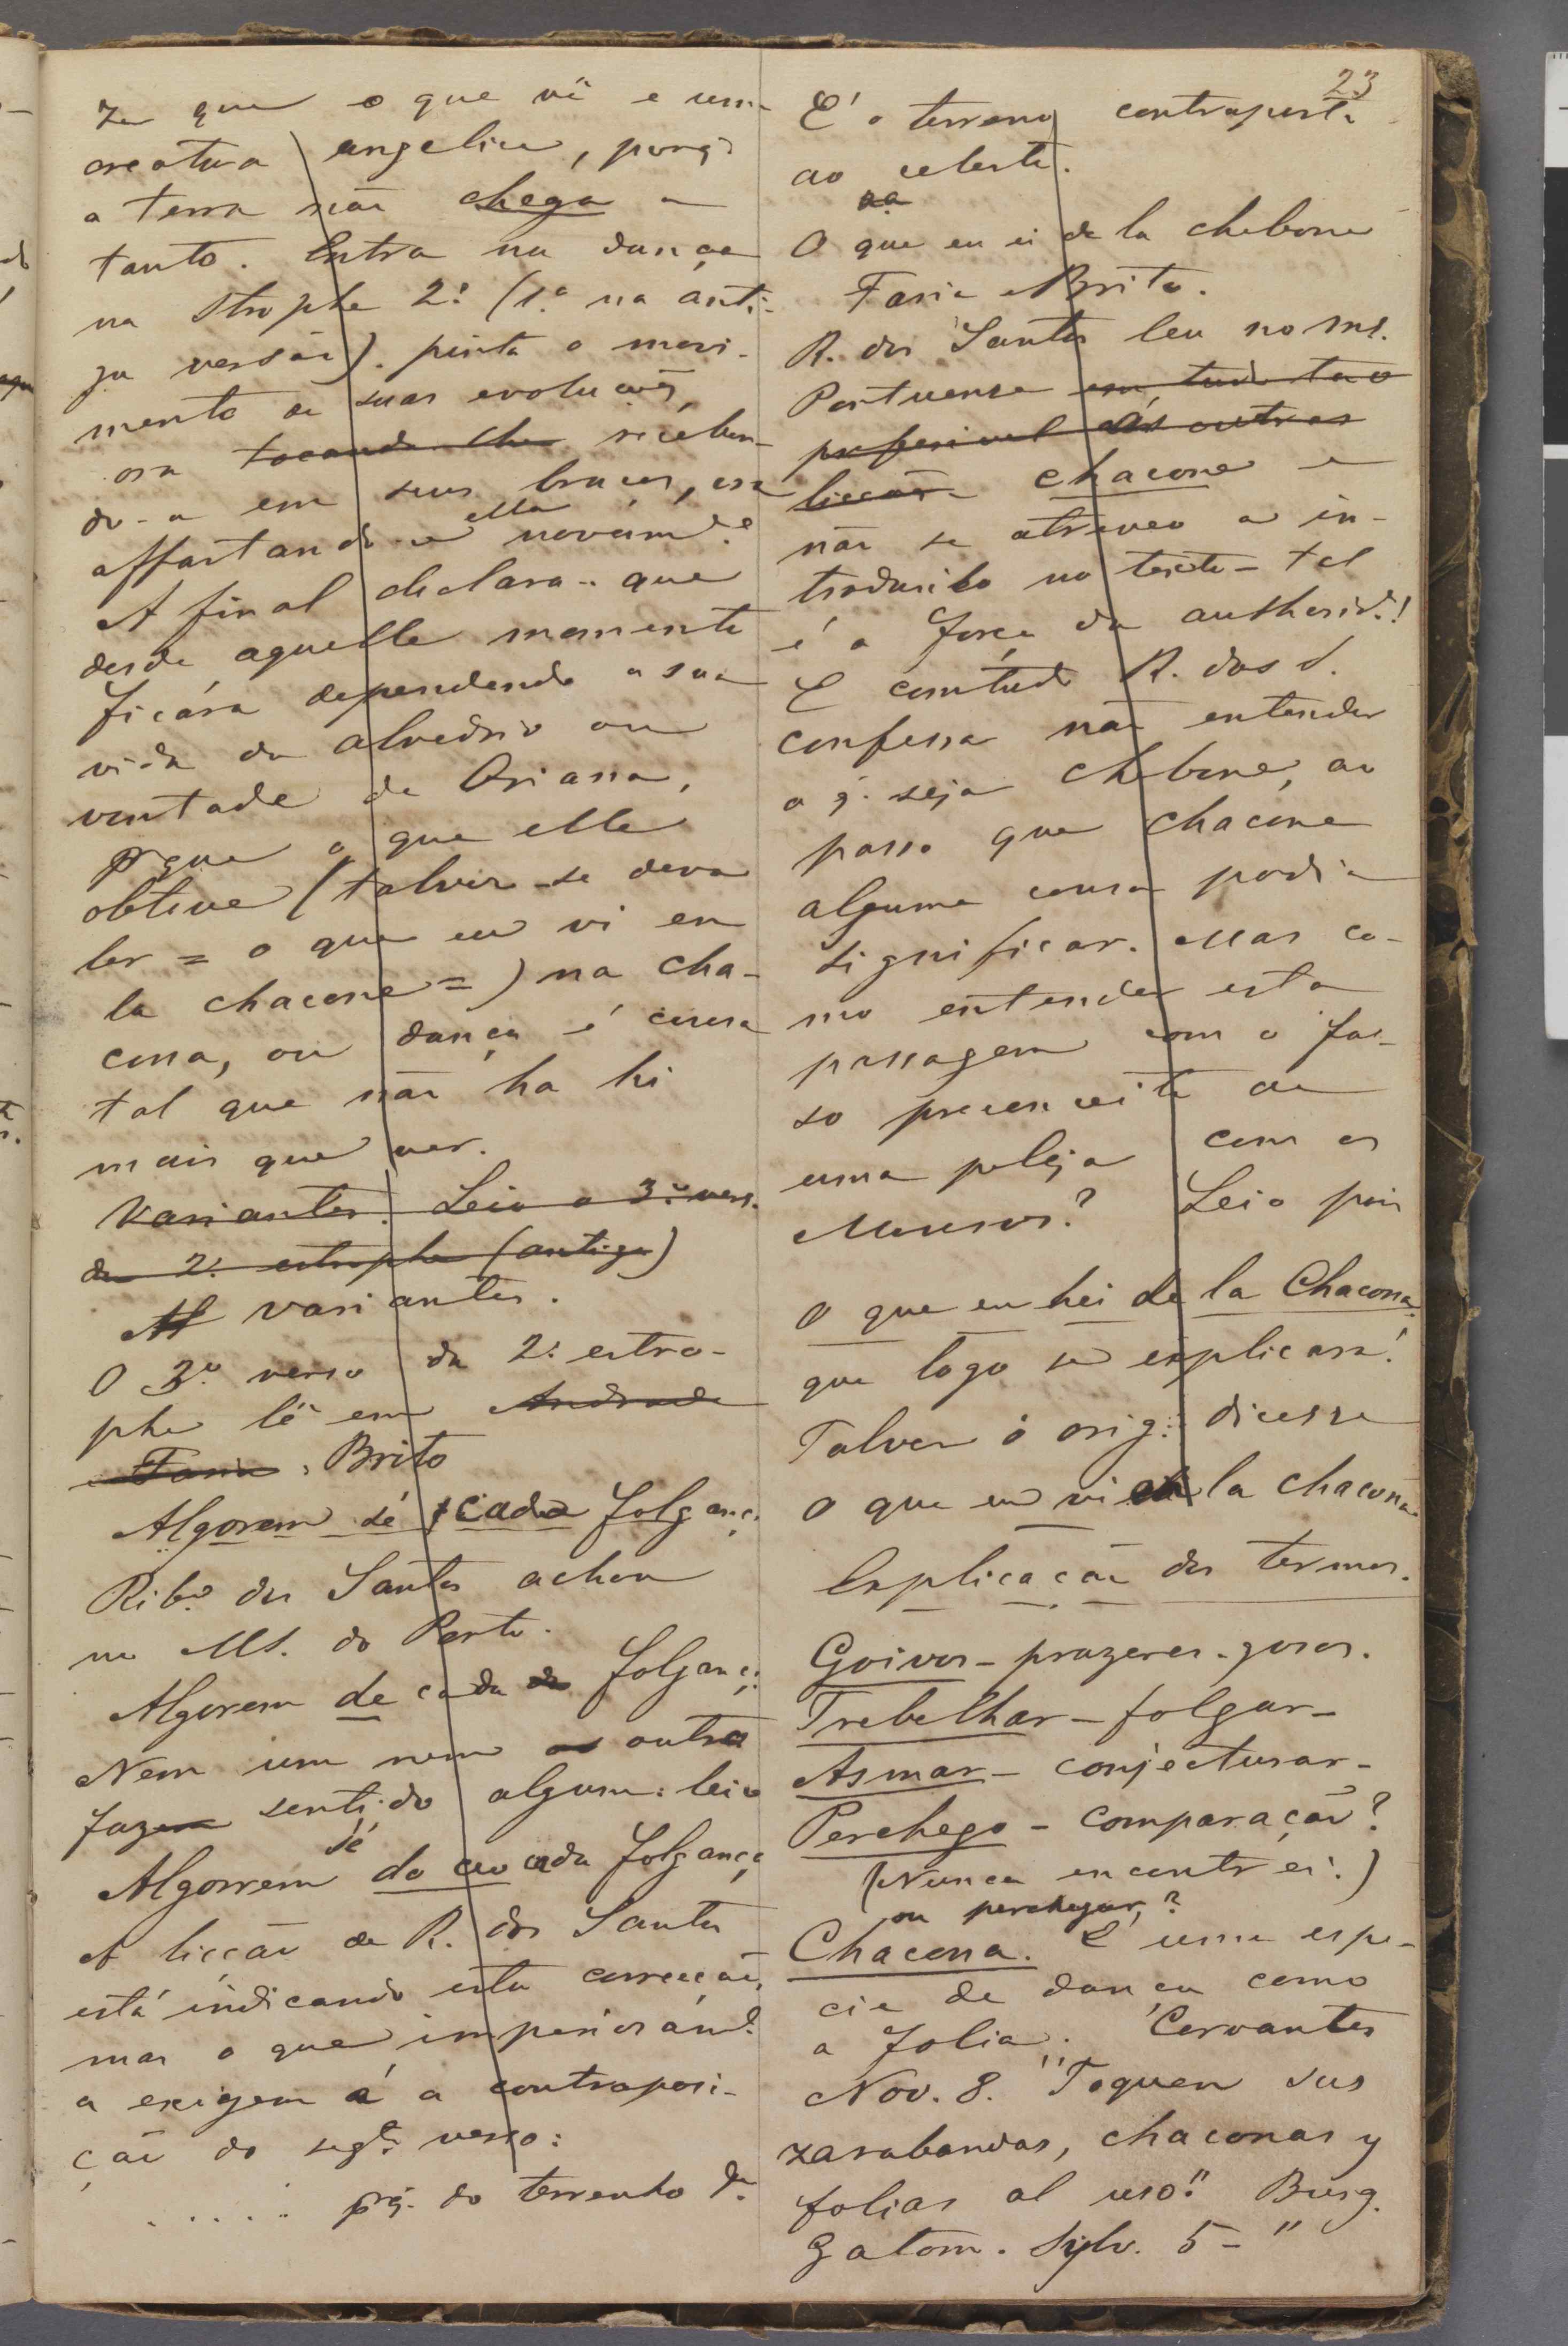 23
ze que o que vê e um-
creatura angelica, porq.
a terra não chega a
tanto. Entra na dança
na Strophe 2ª (1ª na anti-
ga versão). pinta o movi-
mento de suas evoluções,
ora tocando lhe receben-
do-a em seus braços, ora
affastando-a ella novam.e
A final declara-que
desde aquelle momento
ficára dependendo a sua
vida do alvedrio ou
vontade de Oriana,
pr que o que elle
obtive (talvez-se deva
ler = o que eu vi en
la chacone =) na cha-
cona, ou dança é cousa
tal que não ha hi
mais que ver.
Variantes. Leio o 3º vers.
da 2ª estrophe (antiga)
variantes.
O 3º verso da 2ª estro-
phe lê em Andrade
Faria, Brito
Algorem sé cada folganç.
Ribº dos Santos achou
no MS. do Porto.
Algorem de cada folganç.
Nem um nem outro
fazem sentido algum: leio
Algorrem sé do ceo cada folgança
A licção de R. dos Santos
está indicando esta correcção,
mas o que imperiosam.e
a exigem é a contraposi-
ção do segte verso:
..... prq. do terrenho da
É o terreno contraposto
ao celeste.
O que eu ei de la chebone
Faria e Brito.
R. dos Santos leu no ms.
Portuense em tudo tão
preferivel ás outras
licções chacone e
não se atreveo a in-
troduzilo no texto - tal
é a força da authorid.e!
E comtudo R. dos S.
confessa não entender
o q. seja Chebone, ao
passo que chacone
alguma cousa podia
significar. Mas co-
mo entender esta
passagem com o fal-
so preconceito de
uma peleja com os
Mouros? Leio pois
O que eu hei de la Chacona
que logo se explicará!
Talvez o orig. dicesse
O que eu vi en la chacona
Explicação dos termos.
Goivos - prazeres - gosos.
Trebelhar - folgar -
Asmar - conjecturar -
Perchego - comparação?
(Nunca encontrei.)
ou perchegar?
Chacona. É uma espe-
cie de dança como
a folia. Cervantes
Nov. 8. "Toquen sus
zarabandas, chaconas y
folias al uso." Burg.
Gatom. Sylv. 5 - "